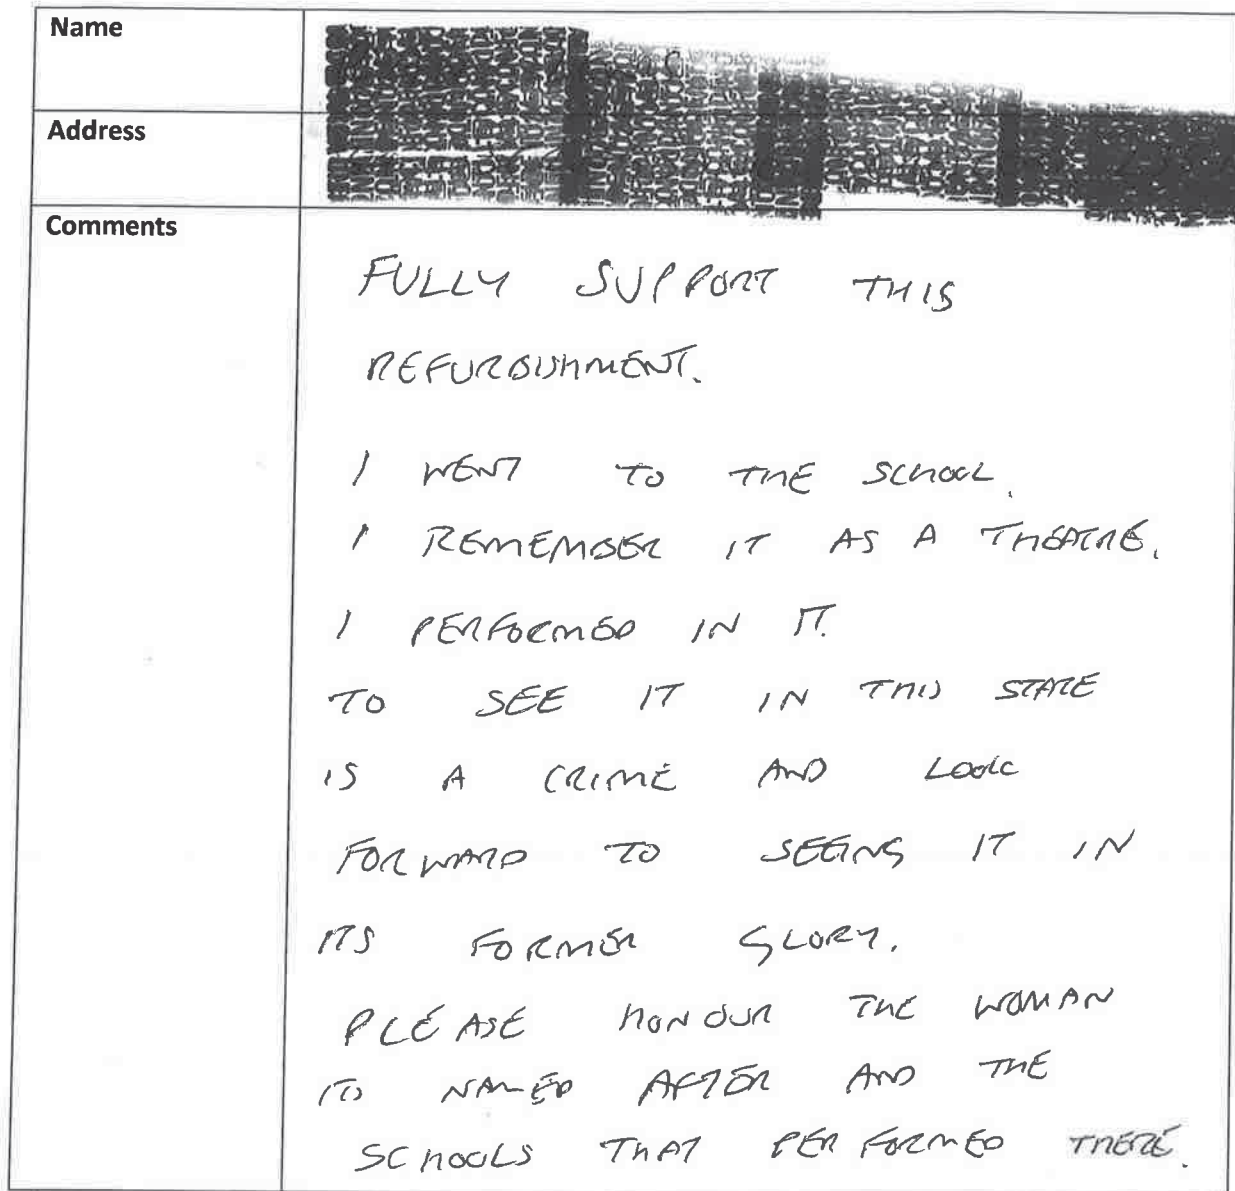 Name
Address
Comments
FULLY SUPPORT THIS
REFURBISHMENT.
I WENT TO THE SCHOOL.
I REMEMBER IT AS A THEATRE.
I PERFORMED IN IT.
TO SEE IT IN THIS STATE
IS A CRIME AND LOOK
FORWARD TO SEEING IT IN
ITS FORMER GLORY.
PLEASE HONOUR THE WOMAN
ITS NAMED AFTER AND THE
SCHOOLS THAT PERFORMED THERE.